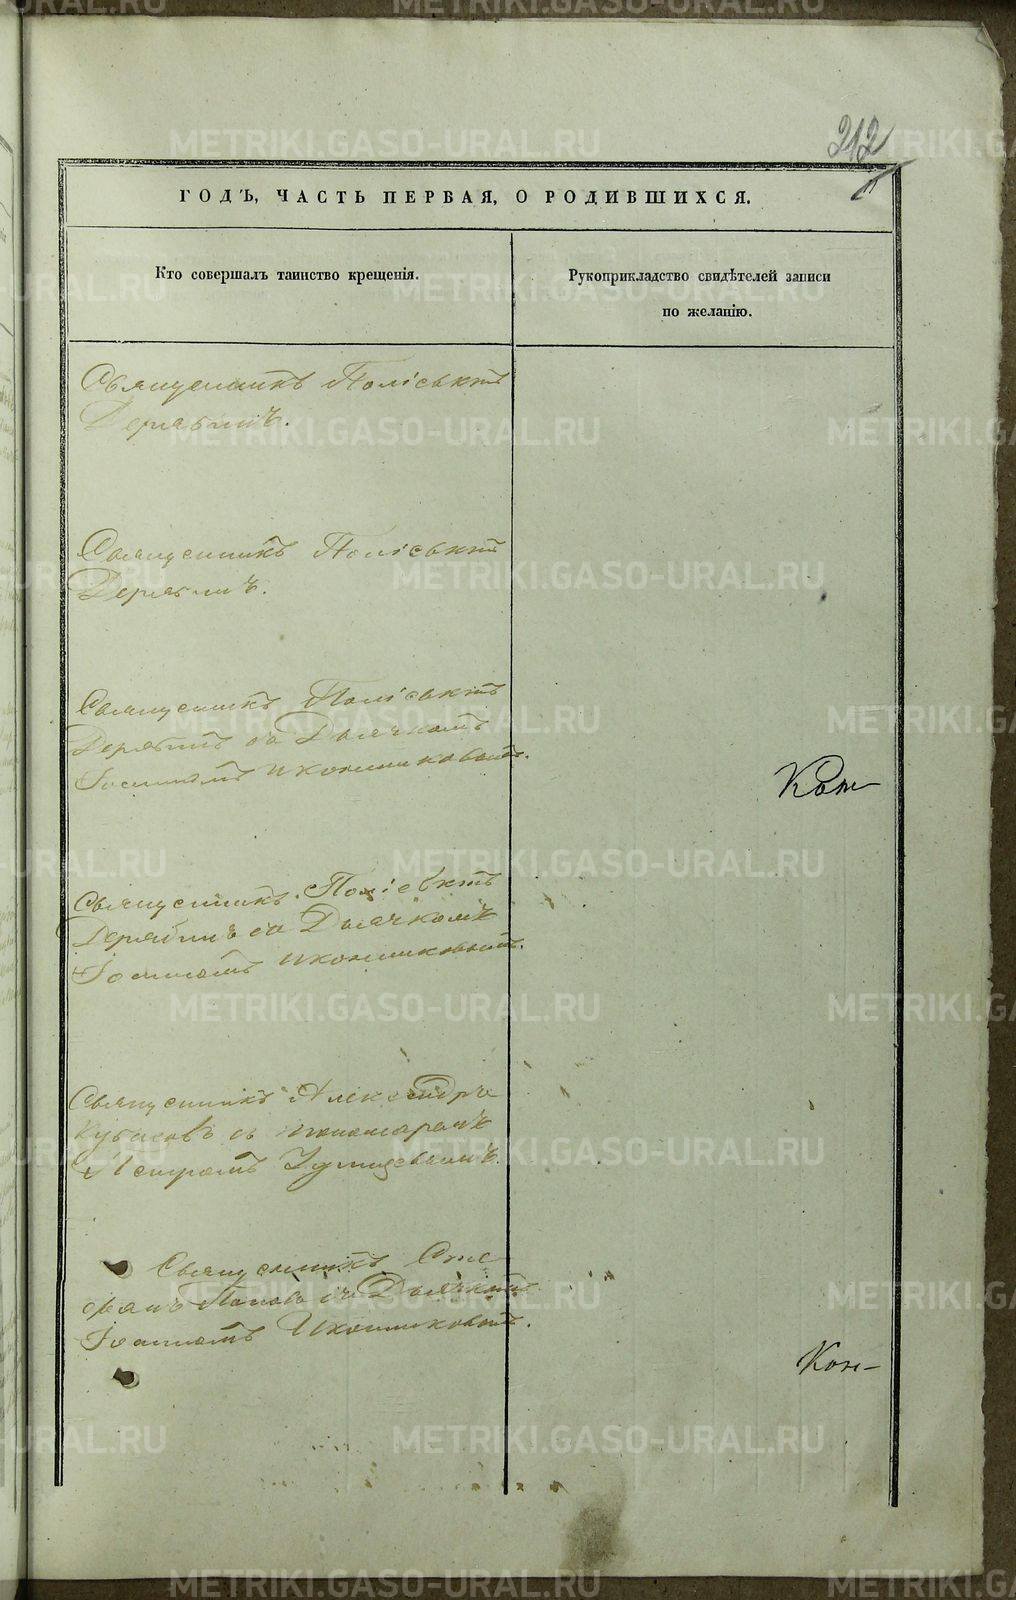 212
ГОДЪ, ЧАСТЬ ПЕРВАЯ, О РОДИВШИХСЯ.
Кто совершалъ таинство крещенія.
Рукоприкладство свидѣтелей записи
по желанію.
Священникъ Поліевктъ
Дерябинъ.
Священникъ Поліевктъ
Дерябинъ.
Священникъ Поліевктъ
Дерябинъ съ Дьячкомъ
Іоанномъ Иконниковымъ.
Священникъ Поліевктъ
Дерябинъ съ Дьячкомъ
Іоанномъ Иконниковымъ.
Священникъ Александръ
съ пономаремъ
Священникъ Сте
фанъ Поповъ съ Дьячкомъ
Іоанномъ Иконниковымъ.
Кон-
METRIKI.GASO-URAL.RU